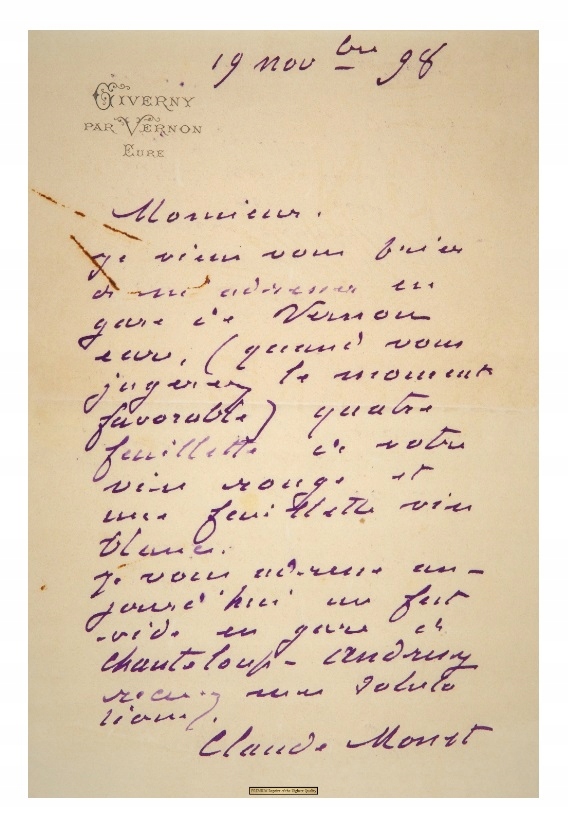 19 nov bre 98
GIVERNY
PAR VERNON
EURE
Monsieur.
je viens vous prier
de m'adresser en
gare de Vernon
eure, (quand vous
jugerez le moment
favorable) quatre
feuillette de votre
vin rouge et
une feuillette vin
blanc.
je vous adresse au-
jourd'hui un fut
vide en gare de
Chanteloup-
recevez mes saluta
tions.
Claude Monet